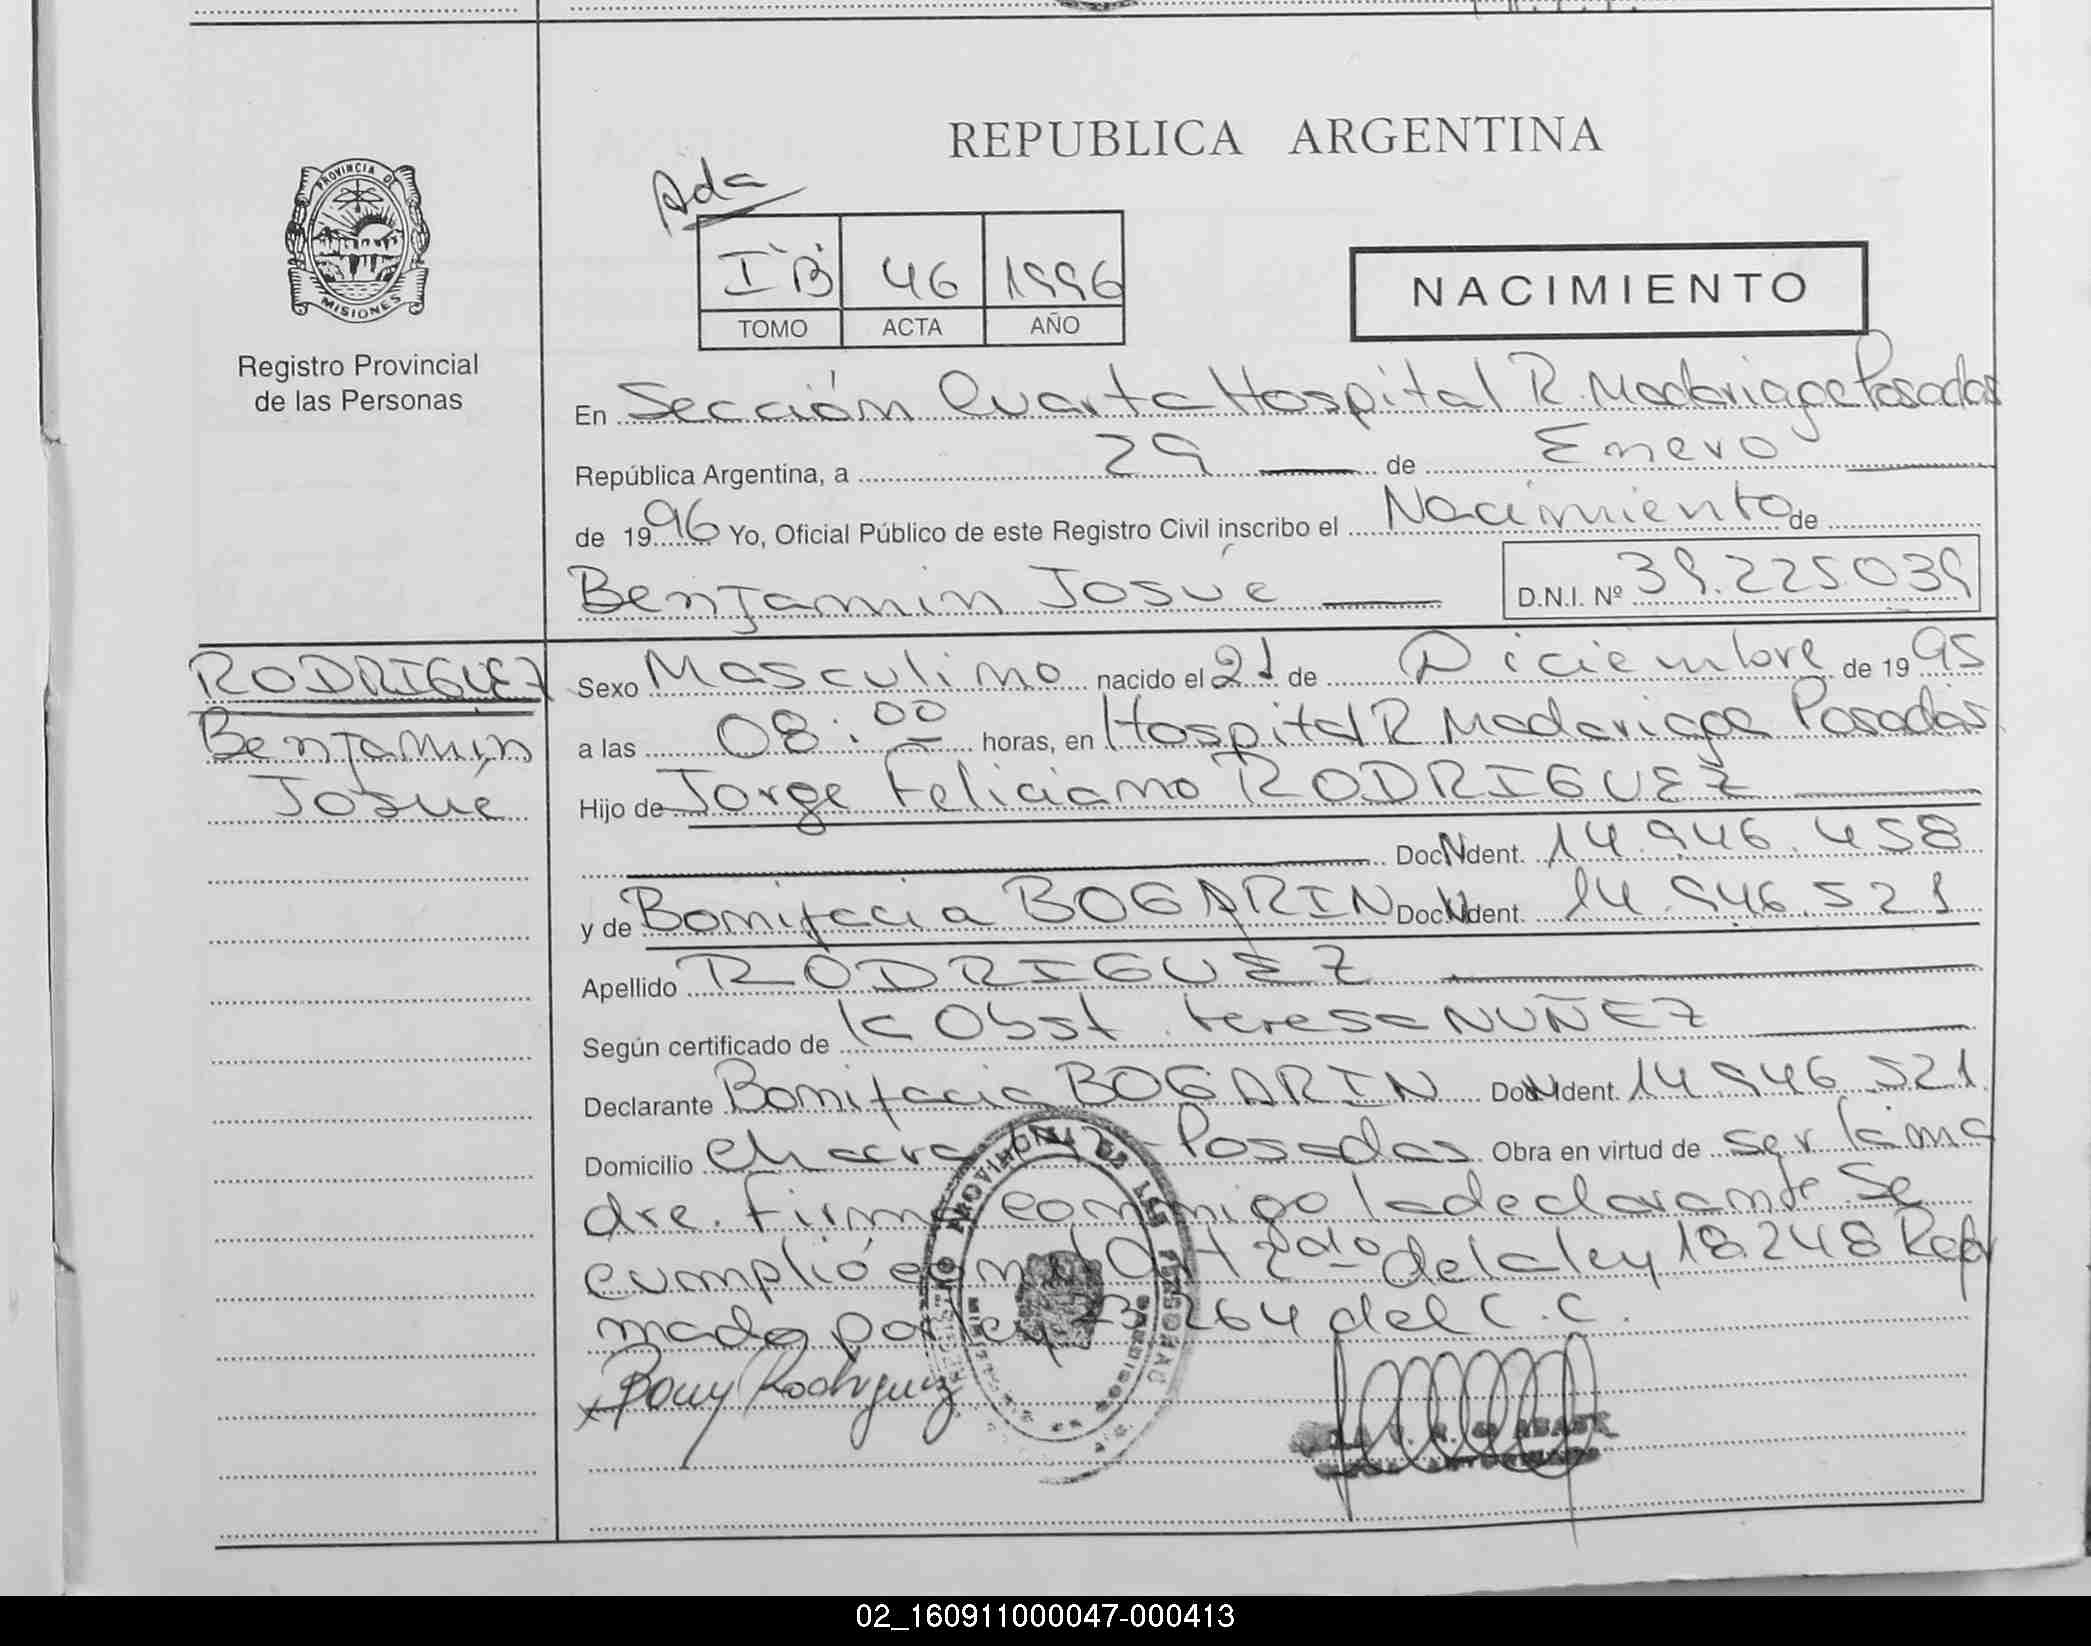 REPUBLICA ARGENTINA
PROVINCIA DE
MISIONES
Registro Provincial
de las Personas
Ada
I`B` 46 1996
TOMO ACTA AÑO
NACIMIENTO
En Sección Cuarta Hospital R. Madariaga Posadas
República Argentina, a 29 de Enero
de 1996 Yo, Oficial Público de este Registro Civil inscribo el Nacimiento de
Benjamín Josué D.N.I. Nº 39.225.039
RODRIGUEZ
Benjamín
Josué
Sexo Masculino nacido el 21 de Diciembre de 1995
a las 08:00 horas, en Hospital R Madariaga Posadas
Hijo de Jorge Feliciano RODRIGUEZ
Doc. Ident. 14.946.458
y de Bonifacia BOGARIN Doc. Ident. 14.946.521
Apellido RODRIGUEZ
Según certificado de la Obst. teresa NUÑEZ
Declarante Bonifacia BOGARIN Doc. Ident. 14.946.521
Domicilio Chacra Posadas Obra en virtud de ser la ma
dre. Firma conmigo la declarante Se
cumplió con el Art 2do de la ley 18.248 Refor
mado por ley 23.264 del C.C.
Bony Rodriguez
02_160911000047-000413